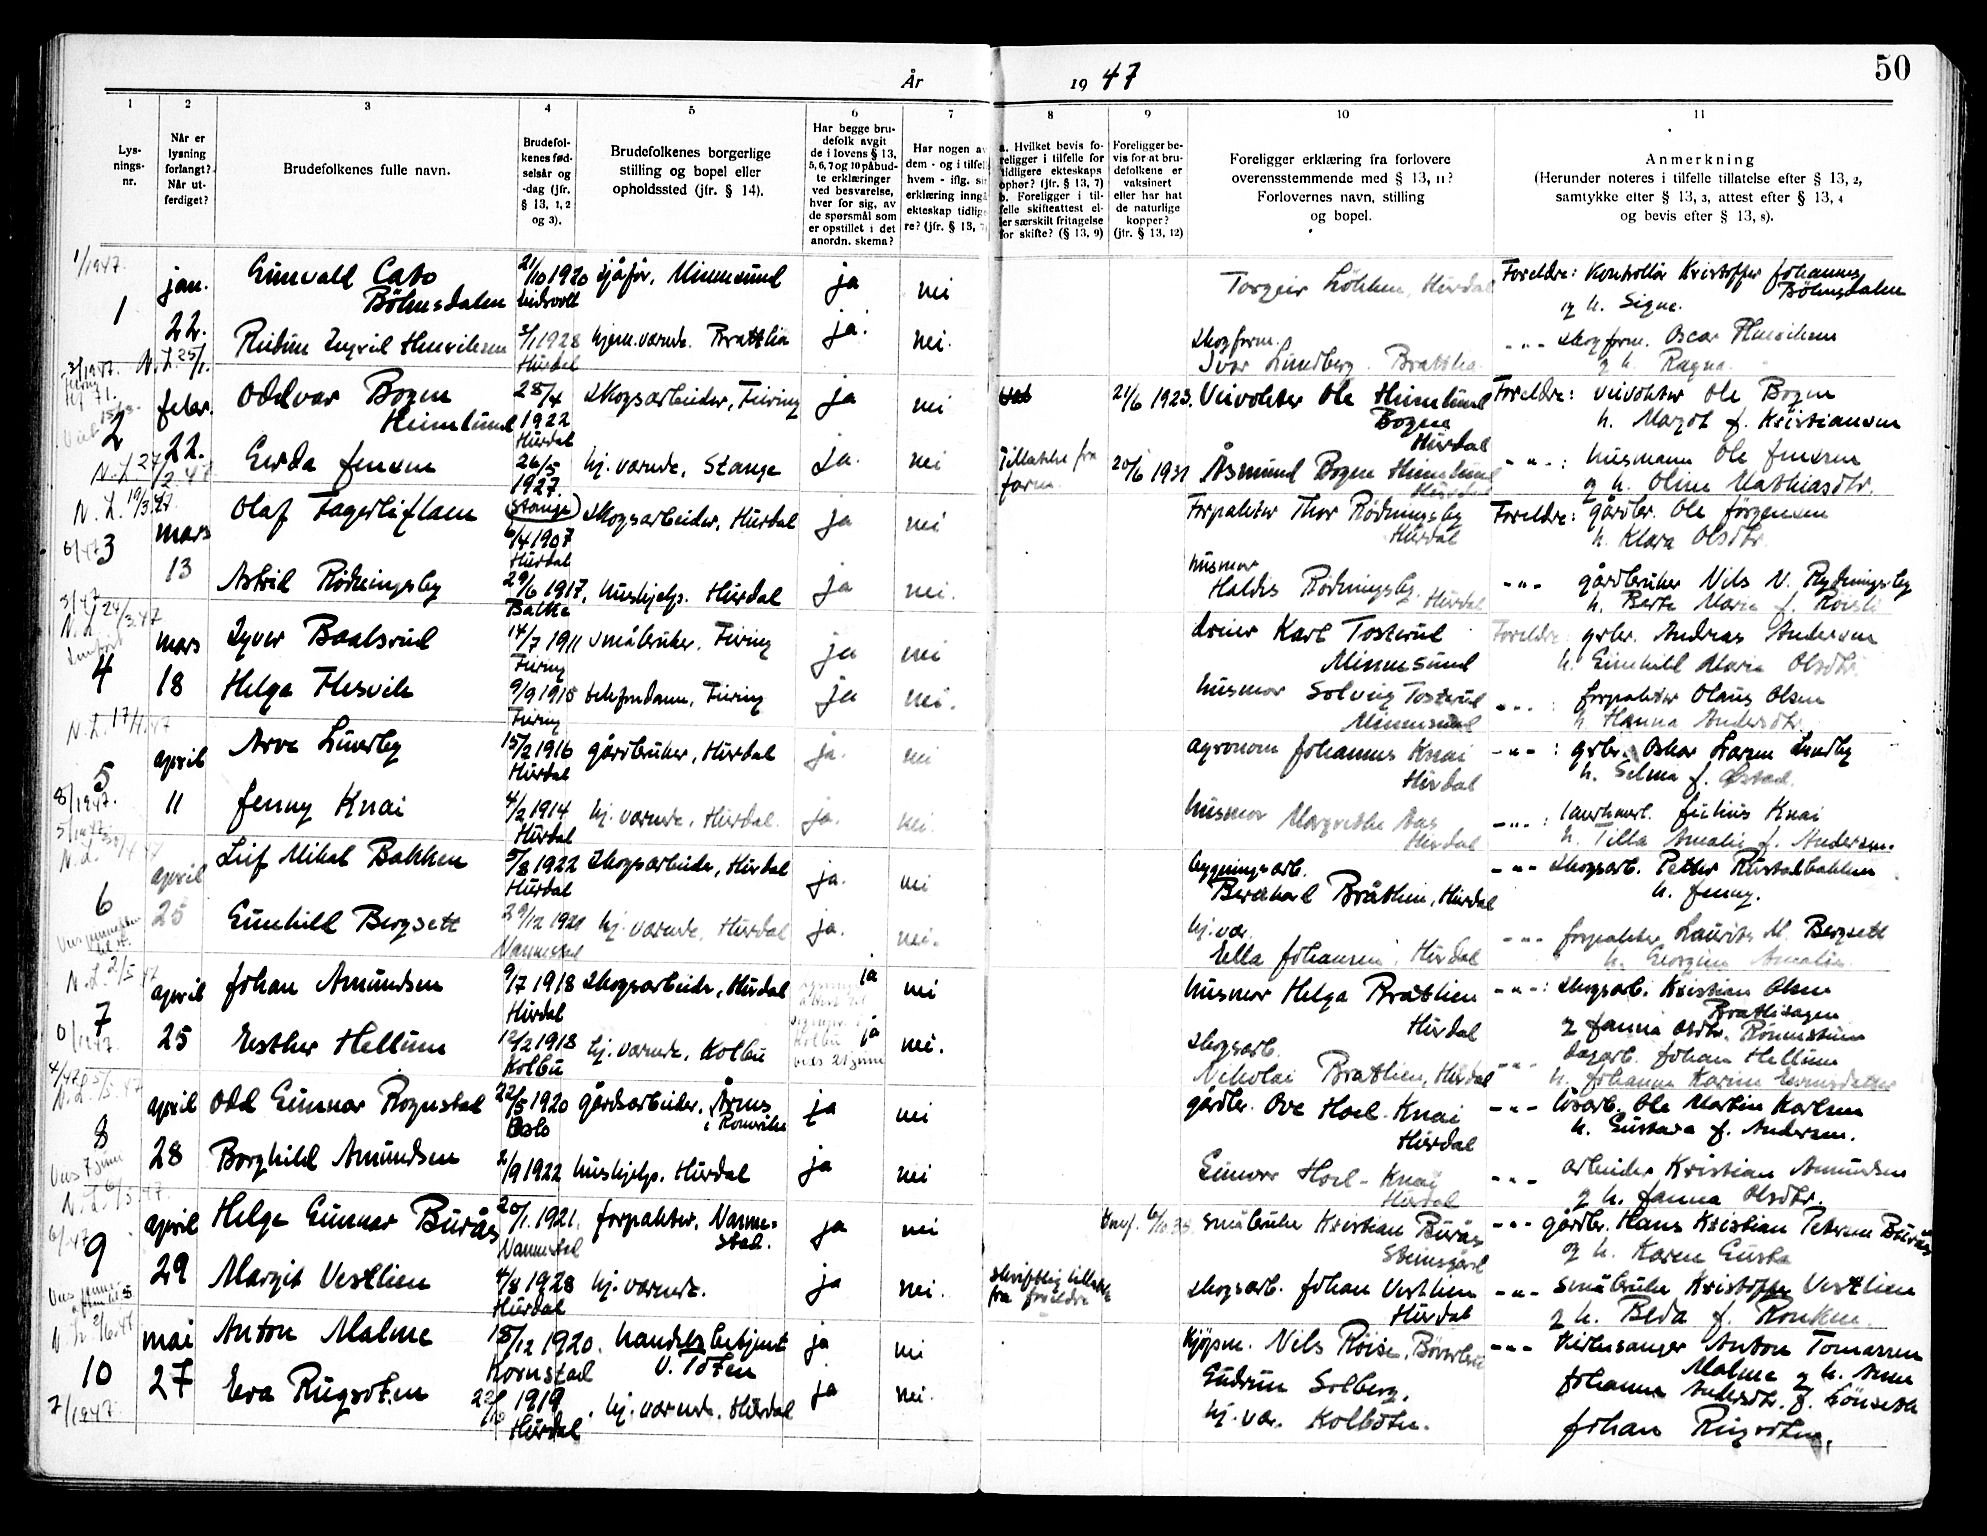 50
År 1947
1 2 3 4 5 6 7 8 9 10 11
Lys-
nings-
nr.
Når er
lysning
forlangt?
Når ut-
ferdiget?
Brudefolkenes fulle navn.
Brudefol-
kenes fød-
selsår og
-dag (jfr.
§ 13, 1, 2
og 3).
Brudefolkenes borgerlige
stilling og bopel eller
opholdssted (jfr. § 14).
Har begge bru-
defolk avgit
de i lovens § 13,
5, 6, 7 og 10 påbud-
te erklæringer
ved besvarelse,
hver for sig, av
de spørsmål som
er opstillet i det
anordn. skema?
Har nogen av
dem - og i tilfel
hvem - iflg. si
erklæring inngå
ekteskap tidlig
re? (jfr. § 13, 7)
a. Hvilket bevis fo-
religger i tilfelle for
tidligere ekteskaps
ophør? (jfr. § 13, 7)
b. Foreligger i til-
felle skifteattest el-
ler særskilt fritagelse
for skifte? (§ 13, 9)
Foreligger be-
vis for at bru-
defolkene er
vaksinert
eller har hat
de naturlige
kopper?
(jfr. § 13, 12)
Foreligger erklæring fra forlovere
overensstemmende med § 13, 11?
Forlovernes navn, stilling
og bopel.
Anmerkning
(Herunder noteres i tilfelle tillatelse efter § 13, 2,
samtykke efter § 13, 3, attest efter § 13, 4
og bevis efter § 13, 8).
1/1947.
1 jan. Gunvald Cato 21/10 1920 sjåfør, Minnesund ja nei Torgeir Løkken, Hurdal Foreldre: Kontrollør Kristoffer Johannes
Böhnsdalen Eidsvoll Böhnsdalen
og h. Signe.
22. Ingrid Henriksen 3/1 1928 hjem.værende. Brattlia ja. nei. skogform. " skogform. Oscar Henriksen
Hurdal Ivar Lundberg. Brattlia og h. Ragna.
2/1947. N.L. 25/1.
2 febr. Oddvar Bogen 28/4 skogsarbeider, Feiring ja nei 21/6 1923. Veivokter Ole Heimlund Foreldre: veivokter Ole Bogen
Heimlund 1922 Bogen h. Margot f. Kristiansen
Hurdal Hurdal
22. Gerda Jensen 26/5 hj. værende, Stange ja. nei Tillatelse fra 20/6 1931 Åsmund Bogen Heimlund " : husmann Ole Jensen
1927. Hurdal og h. Oline Mathiasdtr.
N.L. 27/2.47
N.L. 10/3.47
3 mars Olaf Fagerliflaen Stange skogsarbeider, Hurdal ja nei Forpakter Thor Rødningsby Foreldre: gårdbr. Ole Jørgensen
6/4 1907 Hurdal h. Klara Olsdtr.
Hurdal
13 Astrid Rødningsby 29/6 1917, hushjelp. Hurdal ja nei. husmor " gårdbruker Nils N. Rydningsby
Haldis Rødningsby. Hurdal h. Berte Marie f. Røisli
N.L. 24/3.47
4 mars Baalsrud 14/7 1911 småbruker. Feiring ja nei Karl Tosterud Foreldre: grbr. Andreas Andersen
Feiring Minnesund h. Gunhild Marie Olsdtr.
18 Helga Hesvik 9/9 1915 telefondame, Feiring ja nei. husmor Solveig Tosterud " : forpakter Olaus Olsen
Feiring Minnesund h. Hanna Andersdtr.
N.L. 17/4.47
5 april Arve Lundby 15/2 1916 gårdbruker, Hurdal ja. nei agronom Johannes Knai " : grbr. Oskar Larsen Lundby
Hurdal Hurdal h. Selma f. Østad.
8/1947. 11 Jenny Knai 4/2 1914 hj. værende, Hurdal. ja. nei. husmor Margrethe Aas " : Julius Knai
Hurdal Hurdal h. Tilla Amalie f. Andersen.
5/1947
6 april Leif Mikal Bakken 5/8 1922 skogsarbeider, Hurdal ja. nei bygningsarb. " skogsarb. Petter
Hurdal Bernhard Bråthen, Hurdal h. Jenny.
25 Gunhild Bergsett 29/12 1921 hj. værende, Hurdal ja. nei. hj. vær. " forpakter Laurits M. Bergsett
Nannestad Ella Johansen, Hurdal h. Georgine Amalie.
N.L. 2/5 47
7 april Johan Amundsen 9/7 1918 skogsarbeider, Hurdal ja nei husmor Helga Bråthen " : skogsarb. Kristian Olsen
Hurdal Hurdal
25 Esther Hellum 12/2 1918 hj. værende, Kolbu ja nei. skogsarb. og Janna Olsdtr.
Kolbu Nikolai Bråthen, Hurdal " dagarb. Johan Hellum
h. Johanna Karine Evensdatter
N.L. 5/5.47
8 april Odd Gunnar Rognstad 22/5 1920 gårdsarbeider, Årnes ja nei gårdbr. Ove Hoel-Knai " løsarb. Ole Martin Karlsen
Oslo i Romerike Hurdal h. Gustava f. Andersen.
28 Borghild Amundsen 2/9 1922 hushjelp. Hurdal ja nei Gunvor Hoel-Knai " arbeider Kristian Amundsen
Hurdal og h. Janna Olsdtr.
6/47
9 april Helge Gunnar Burås 20/1. 1921. forpakter, Nanne- ja nei småbruker Kristian Burås " gårdbr. Hans Kristian Petersen Burås
Nannestad stad. Steinsgård og h. Karen Gusta
29 Margit Vestlien 4/8 1928 hj. værende. ja nei. skriftlig tillatelse skogsarb. Johan Vestlien " småbruker Kristoffer Vestlien
Hurdal fra foreldre Hurdal og h. Beda f. Ronken.
10 mai Anton Malme 15/12 1920. handelsbetjent ja nei Kjøpm. Nils Røise, Bøverbru " Kirkesanger Anton Tomassen
Kornstad V. Toten Malme og h. Anne
27 Eva Rugsveen 22/10 1919 hj. værende. Hurdal ja nei. Gudrun Solberg. Johanne Andersdtr. f. Lønseth
7/1947. Hurdal hj. vær. Kolbotn. Johan